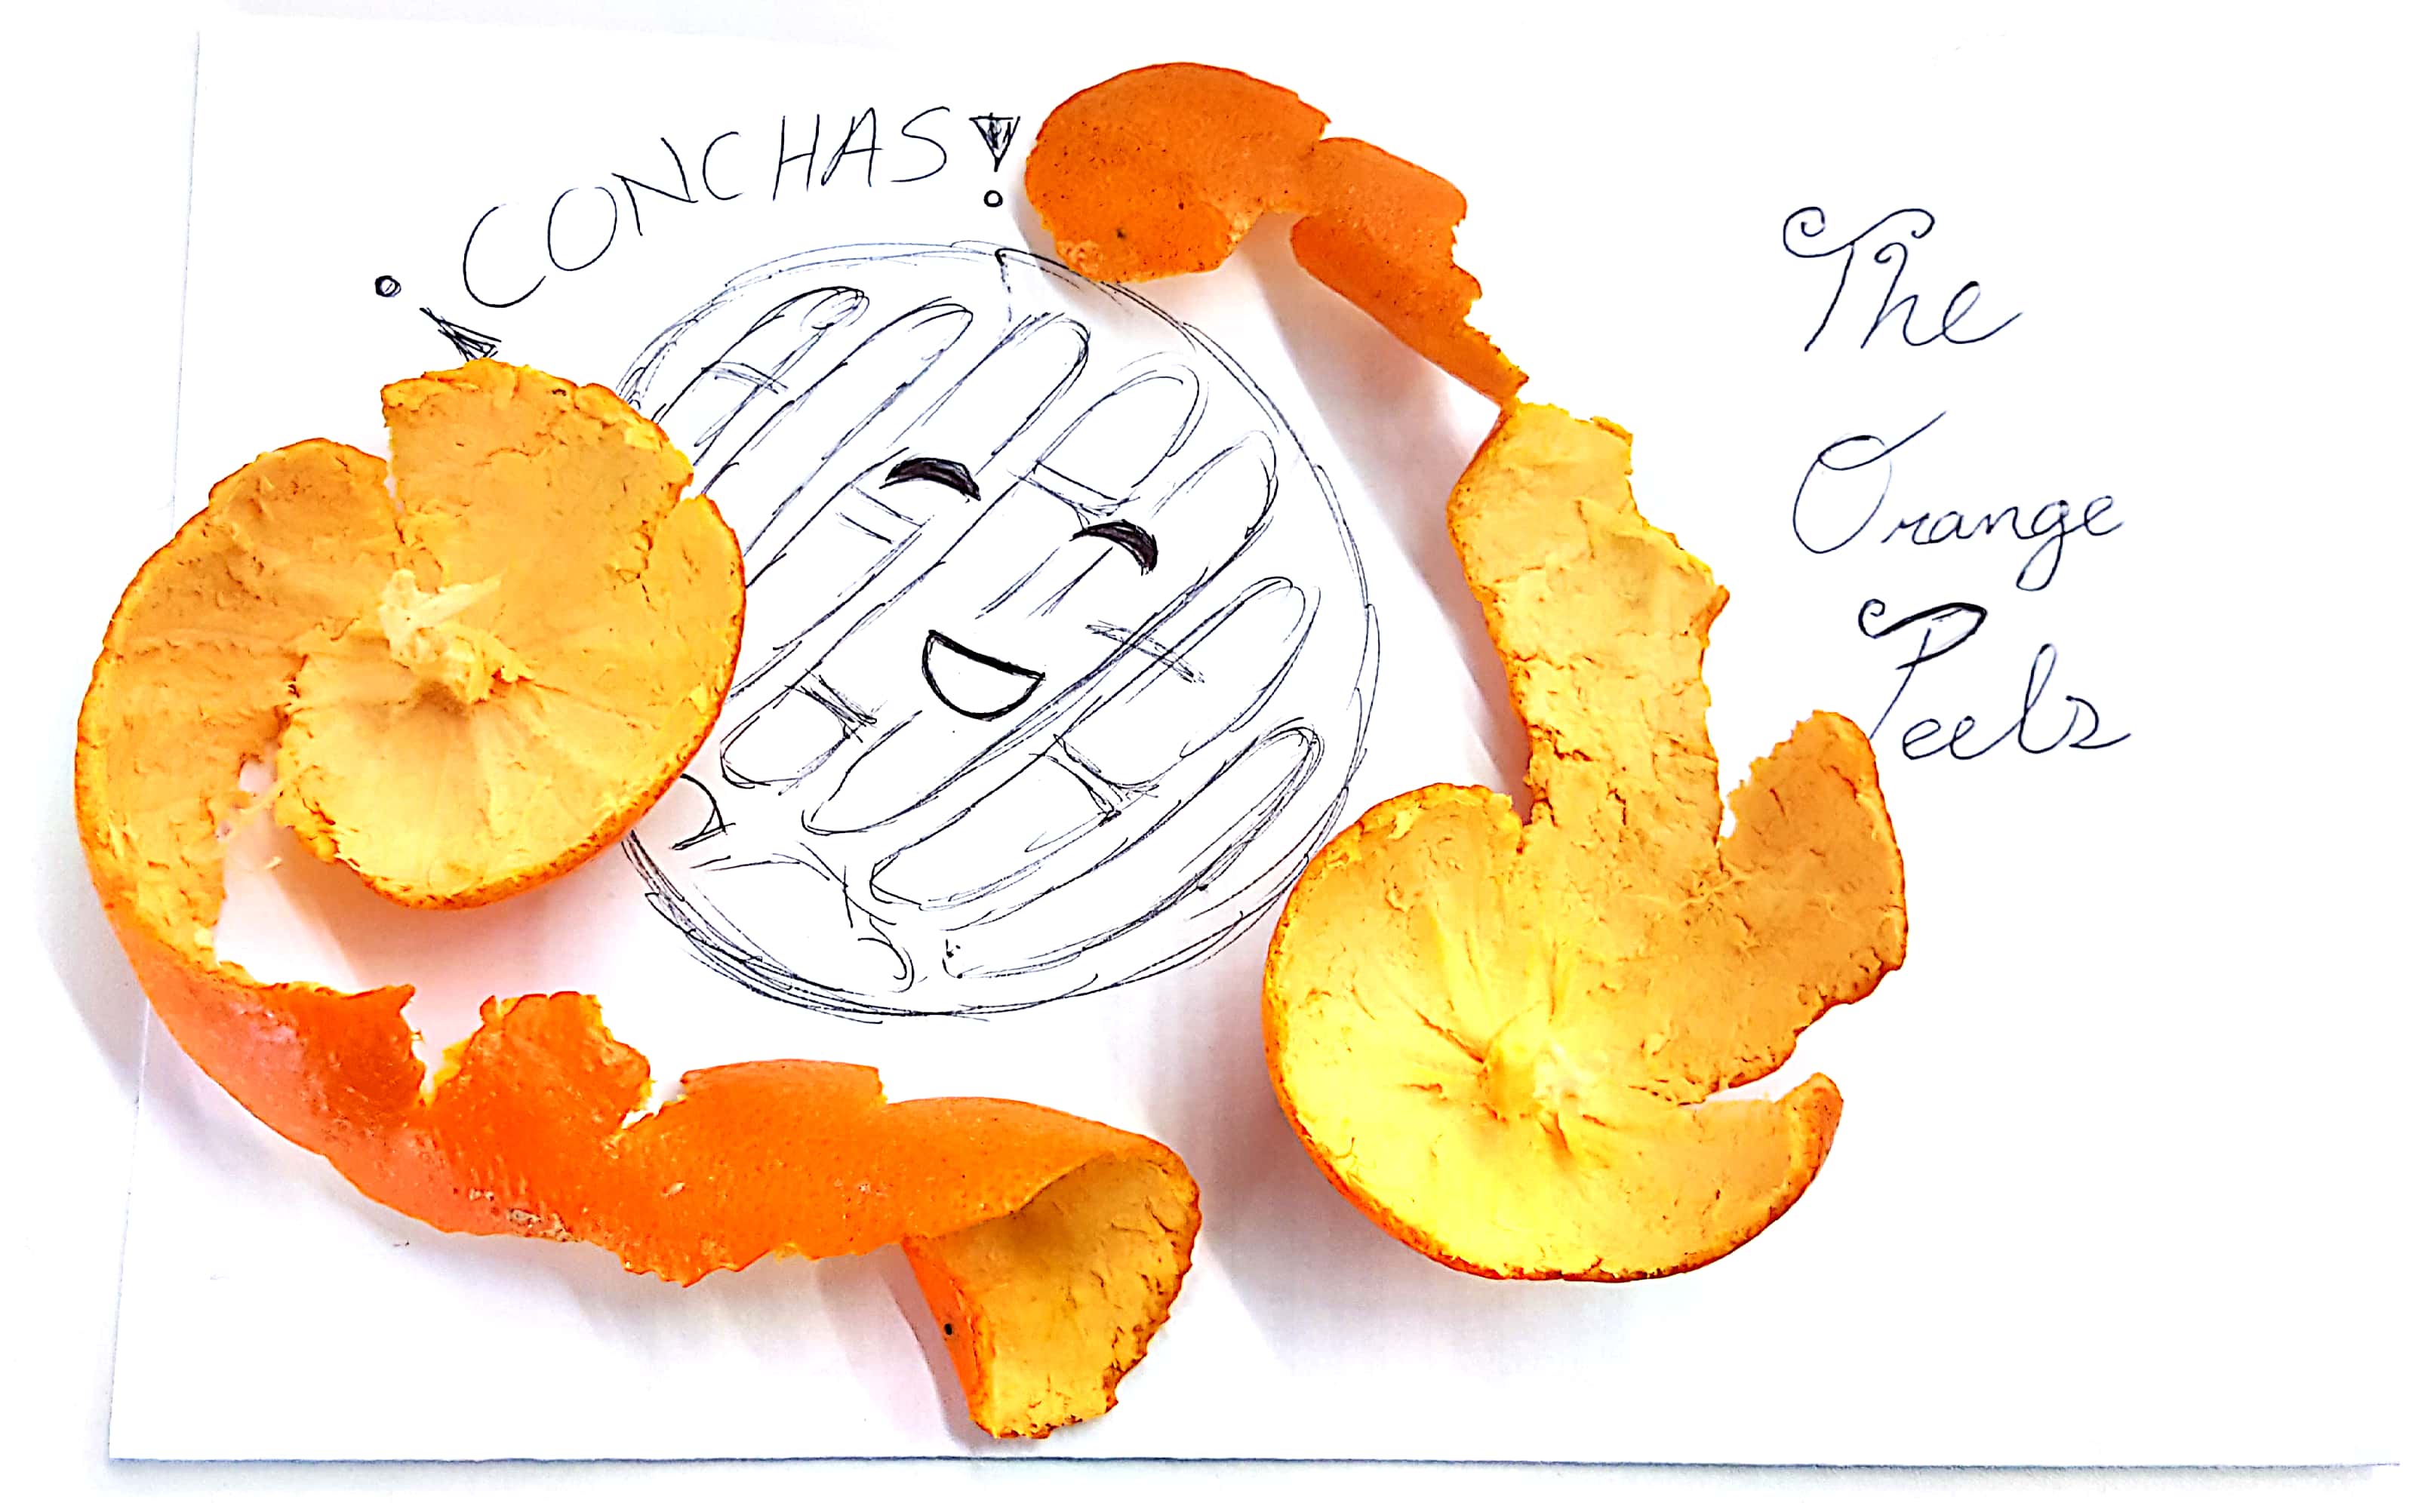 ¡CONCHAS!
The
Orange
Peels